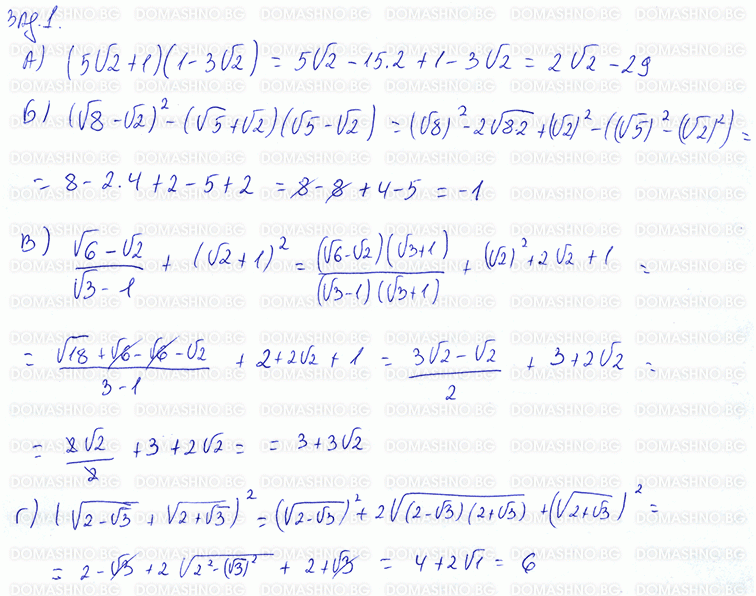 Зад. 1.
А) (5√2+1)(1-3√2) = 5√2-15.2+1-3√2 = 2√2-29
Б) (√8-√2)²-(√5+√2)(√5-√2) = (√8)²-2√8.2+(√2)²-((√5)²-(√2)²) =
= 8-2.4+2-5+2 = 8-8+4-5 = -1
В) (√6-√2)/(√3-1) + (√2+1)² = ((√6-√2)(√3+1))/((√3-1)(√3+1)) + (√2)²+2√2+1 =
= (√18+√6-√6-√2)/(3-1) + 2+2√2+1 = (3√2-√2)/2 + 3+2√2 =
= 2√2/2 +3+2√2 = = 3+3√2
г) (√(2-√3) + √(2+√3))² = (√(2-√3))²+2√((2-√3)(2+√3)) +(√(2+√3))² =
= 2-√3+2√(2²-(√3)²) + 2+√3 = 4+2√1 = 6